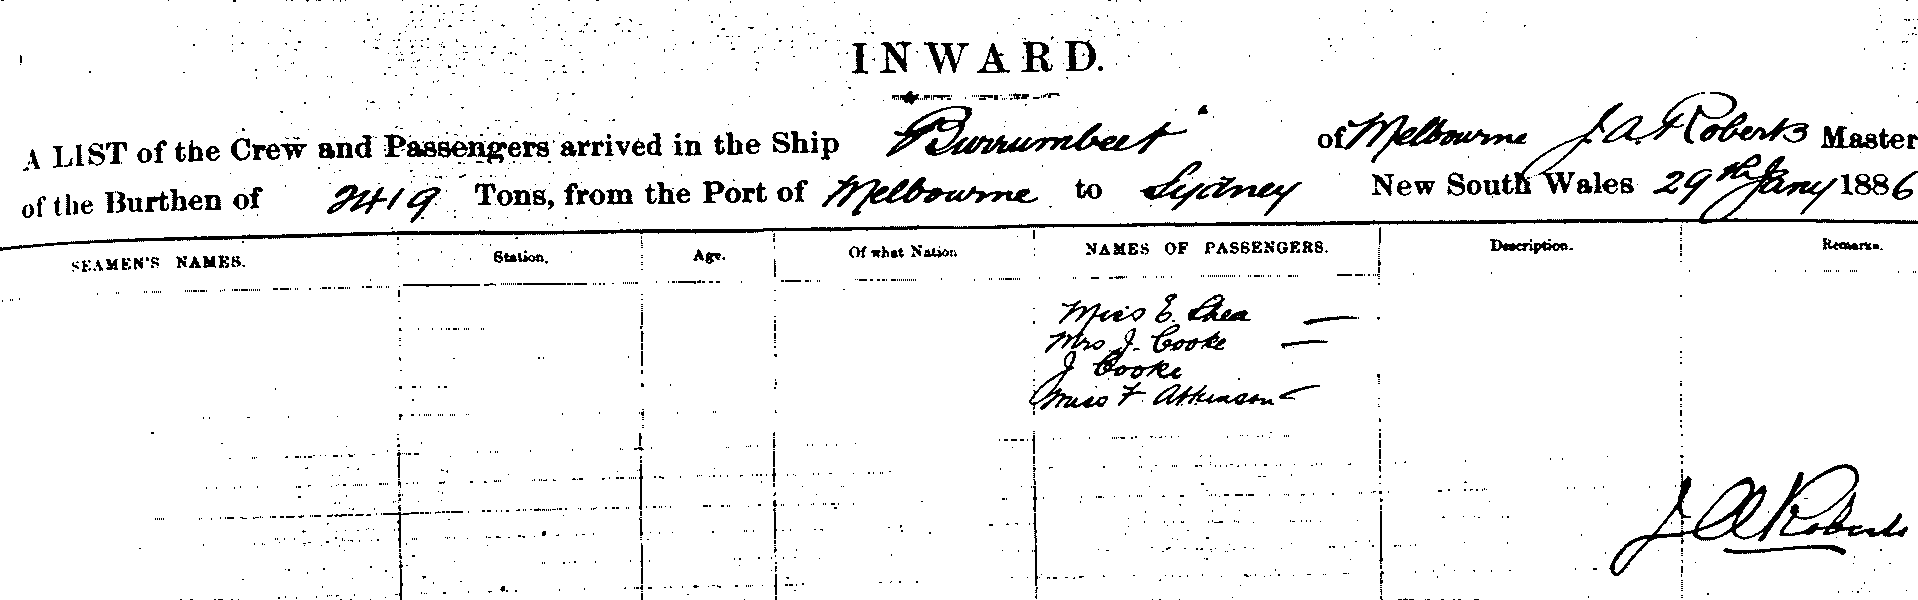 INWARD.
A LIST of the Crew and Passengers arrived in the Ship Burrumbeet of Melbourne J. A. Roberts Master
of the Burthen of 2419 Tons, from the Port of Melbourne to Sydney New South Wales 29th Jany 1886
SEAMEN'S NAMES. Station. Age. Of what Nation. NAMES OF PASSENGERS. Description. Remarks.
Miss E. Shea —
Mrs J. Cooke —
J Cooke
Miss F. Atkinson —
J A Roberts